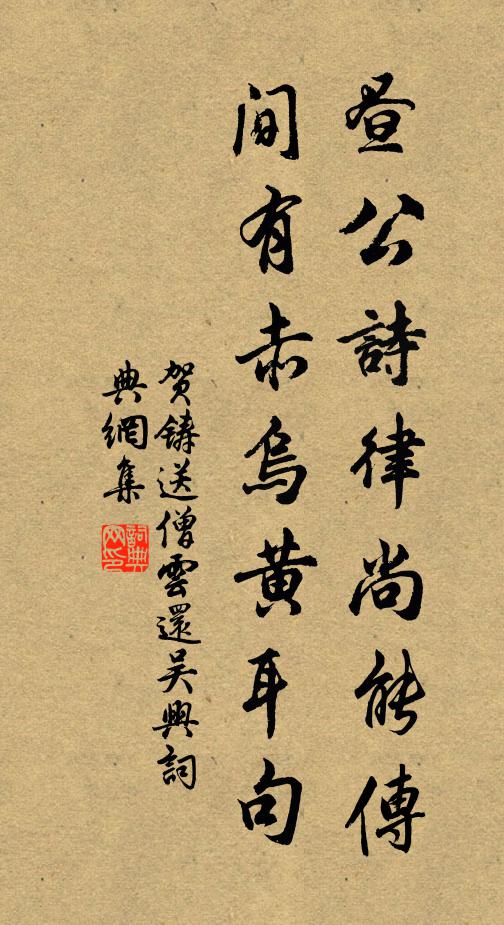 昼公詩律尚能傳
間有赤烏黄耳句
贺鑄送僧雲還吴興詞
典網集
詞典
网印